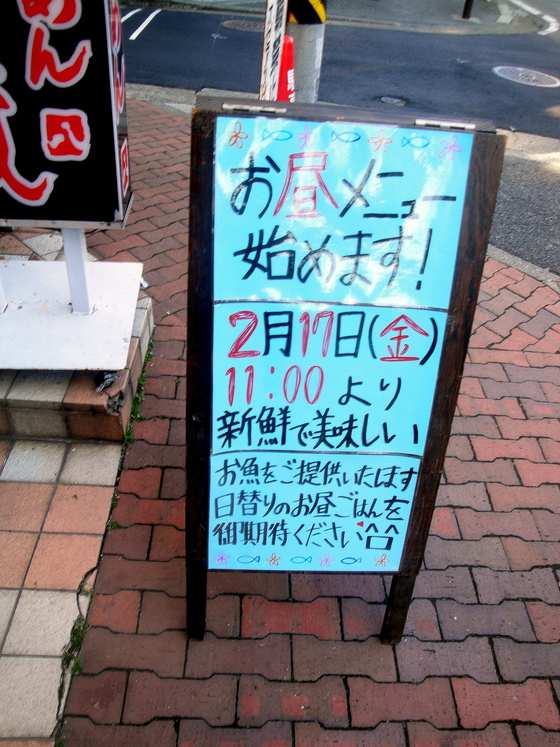 お昼メニュー
始めます!
2月17日(金)
11:00より
新鮮で美味しい
お魚をご提供いたします
日替りのお昼ごはんを
御期待ください^^
めん
八